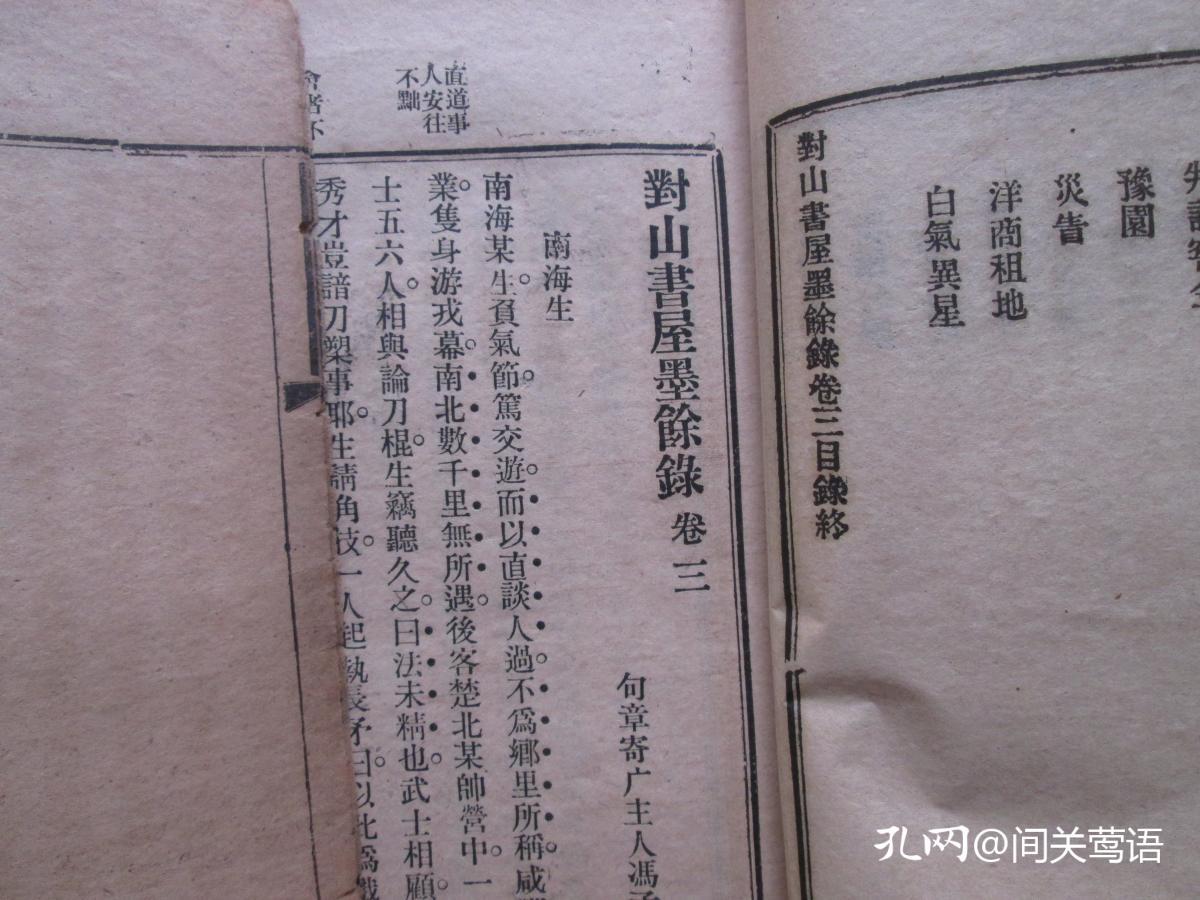 豫園
災眚
洋商租地
白氣異星
對山書屋墨餘錄卷三目錄終
對山書屋墨餘錄 卷三
句章寄广主人馮
南海生
南海某生負氣節篤交遊而以直談人過不爲鄉里所稱咸
業隻身游戎幕南北數千里無所遇後客楚北某帥營中一
士五六人相與論刀棍生竊聽久之曰法未精也武士相顧
秀才豈諳刀槊事耶生請角技一人起執長矛曰以此爲戲
直道事
人安往
不黜
孔网@间关莺语